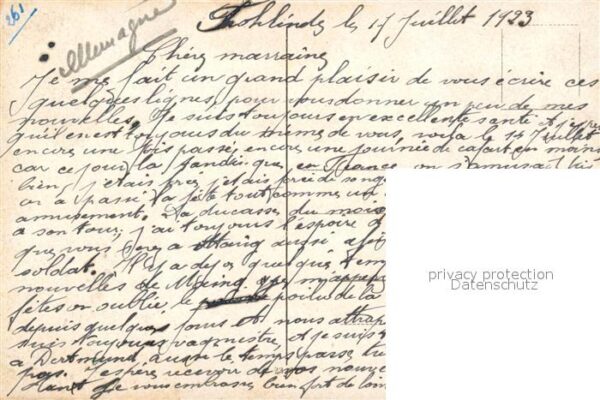 261
Allemagne
Frohlinde le 17 Juillet 1923
Chère marraine
Je me fait un grand plaisir de vous écrire ces
quelques lignes, pour vous donner un peu de mes
nouvelles. Je suis toujours en excellente santé et
qu'il en est toujours du même de vous, voila le 14 Juillet
encore une fois passé, encore une journée de cafart en moins
car ce jour la tandis que en France on s'amusait
bien, j'etais j'etais forcé de
on a passé la fête tout comme un
amusement. La ducasse du mois
a son tour, j'ai toujours l'espoire
que vous a Maing aussi a
soldat. Il y a deja quelque temps
nouvelles de Maing
fêtes on oublie le poilu de la
depuis quelques jours et nous
suis toujours vagmestre, et je suis
a Dortmund, aussi le temps passe
pas. J'espère recevoir de vos nouvelles
Je vous embrasse bien fort de loin
privacy protection
Datenschutz